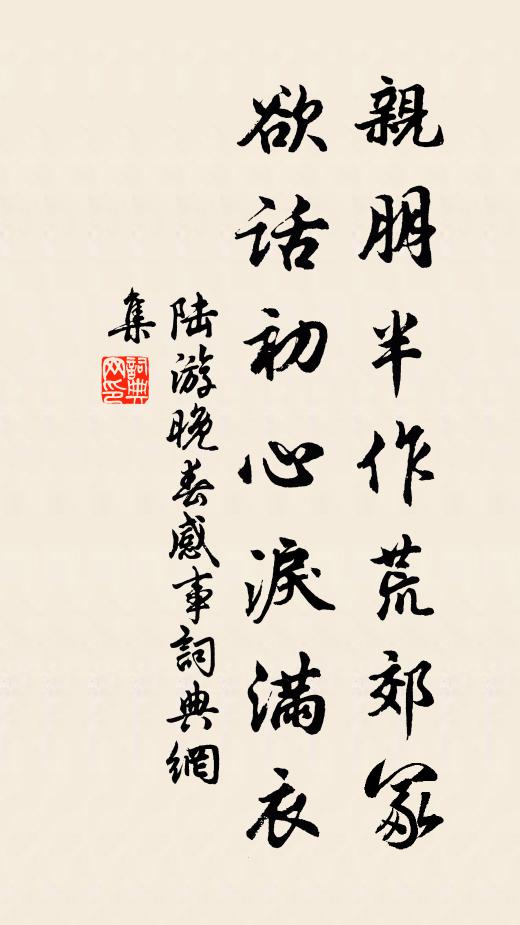 親朋半作荒郊冢
欲話初心淚滿衣
陸游晚春感事詞典網
集
詞典
网印